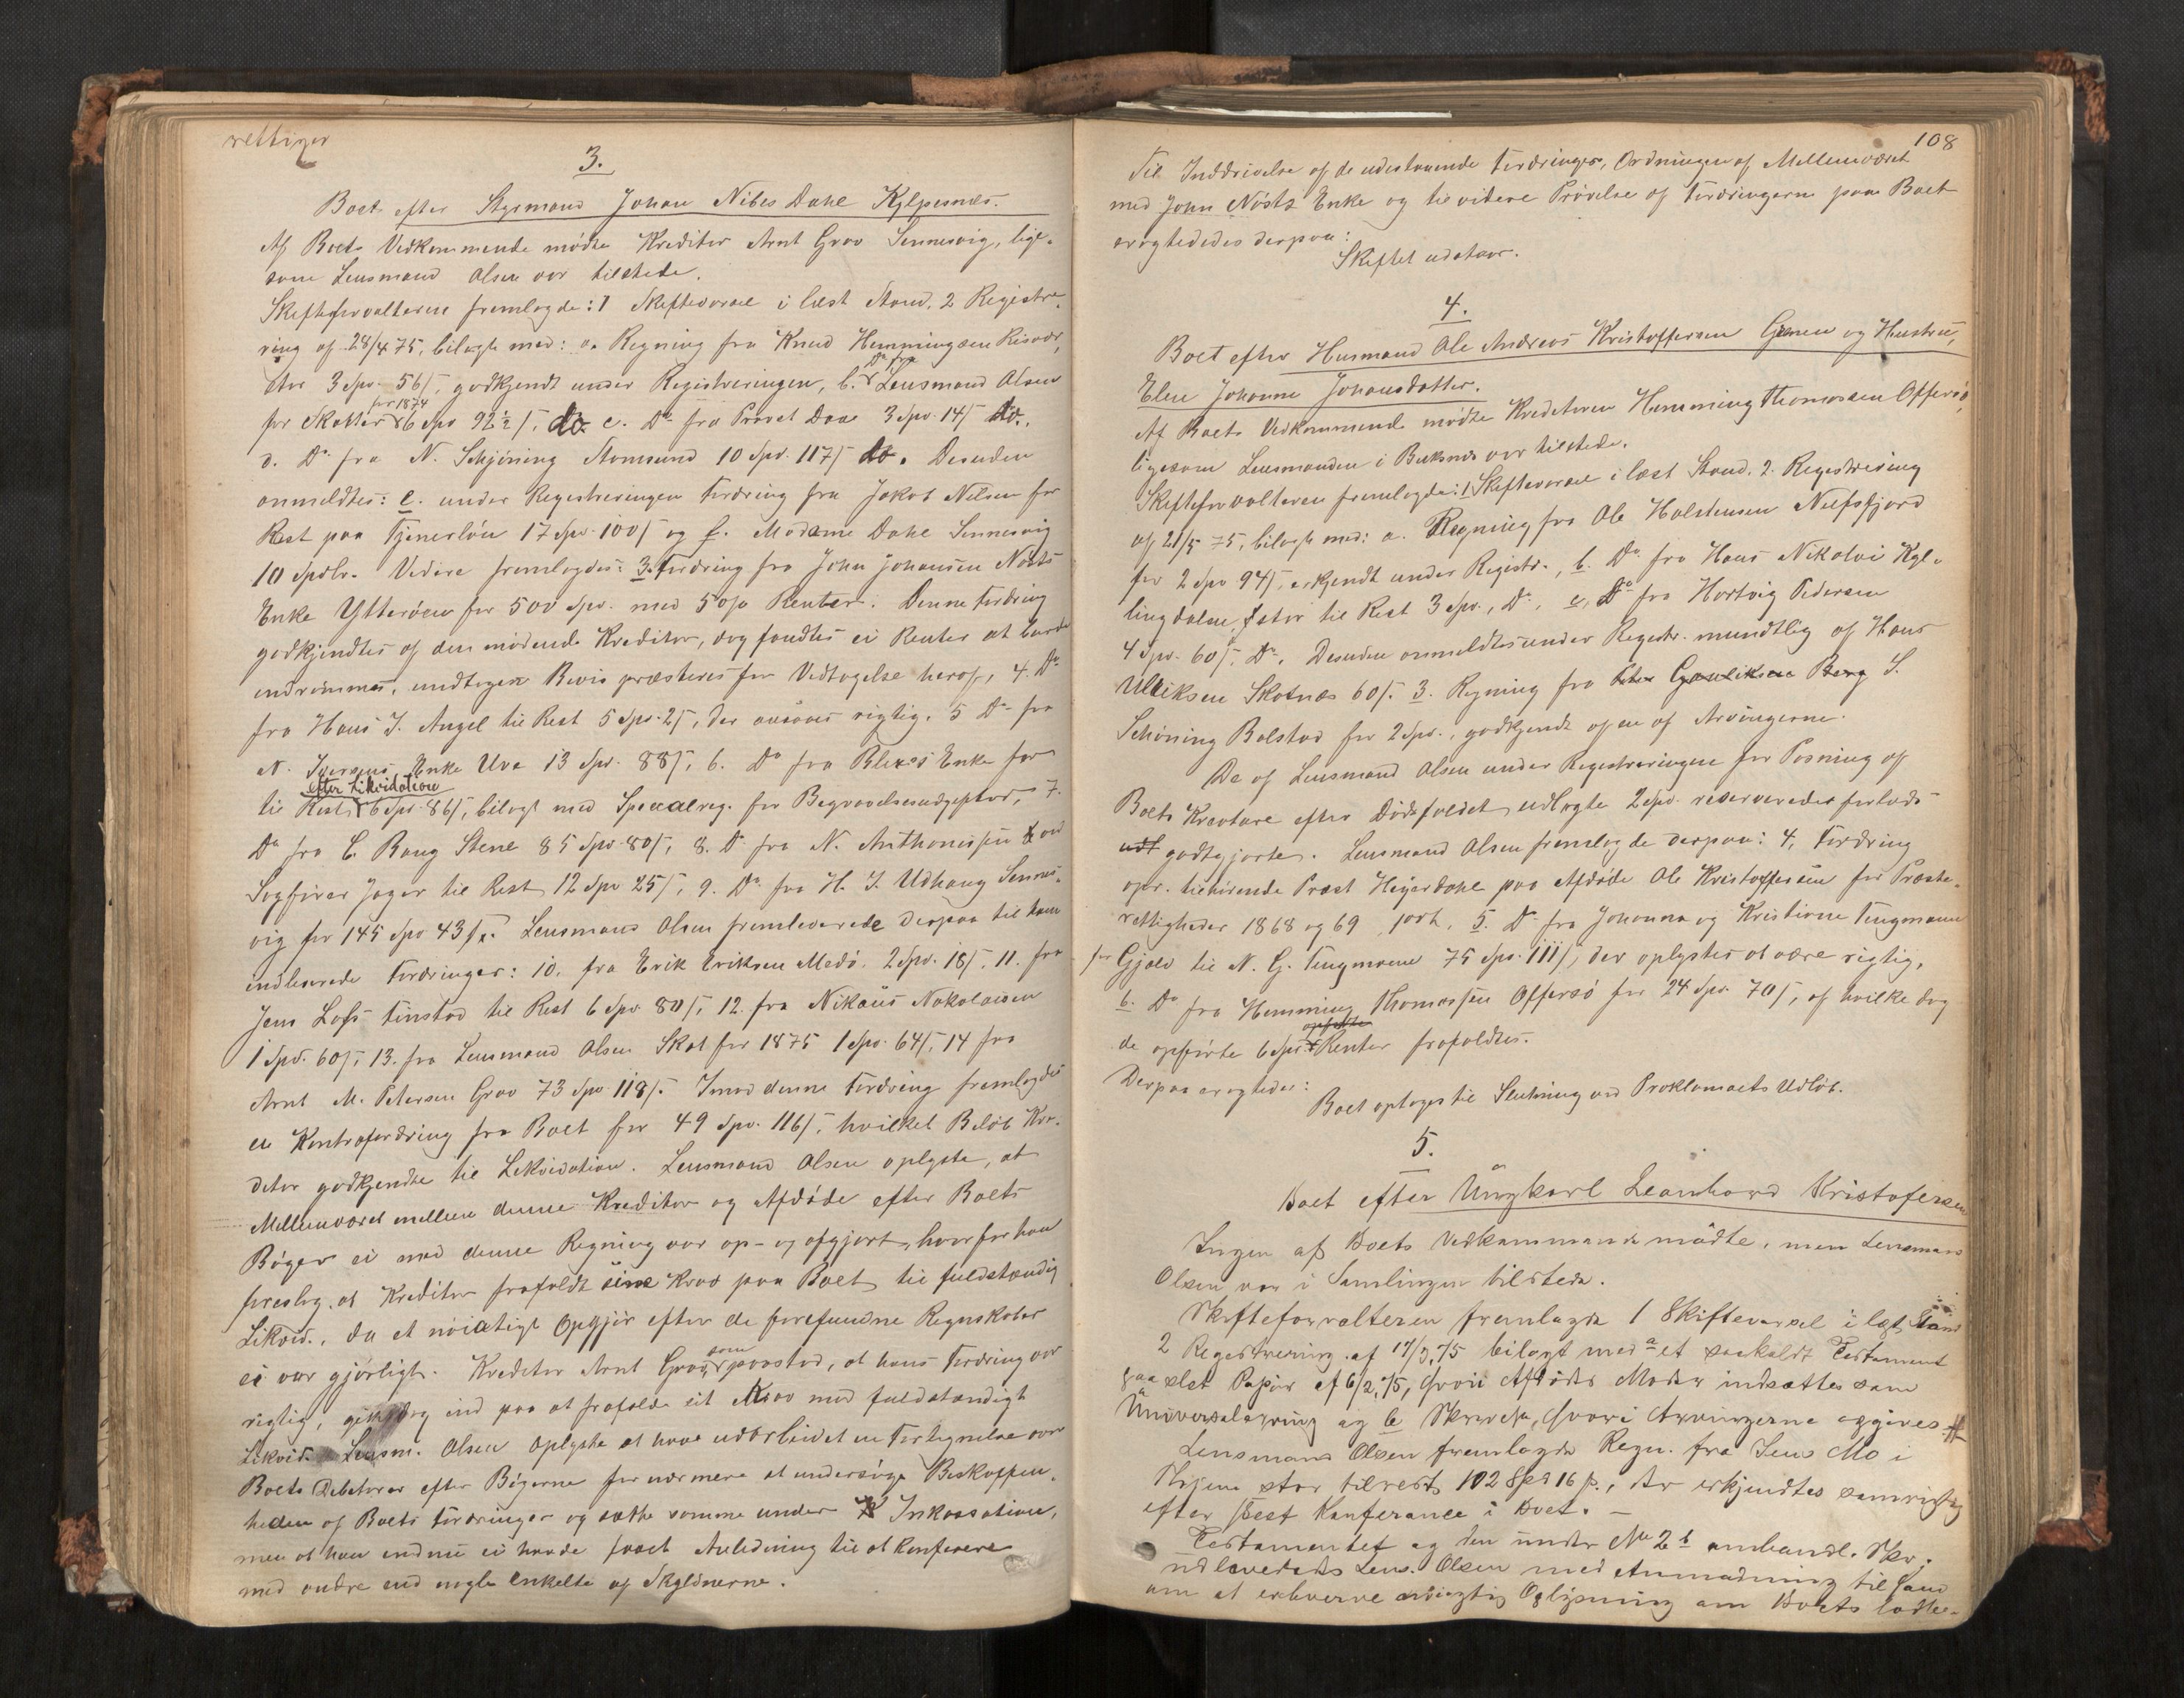 rettiger
3.
Boet efter Styrmand Johan Nibes Dahl Kylpesnes.
Af Boets Vedkommende mødte Kreditor Arnt Grav Sennesvig, lige-
som Lensmand Olsen var tilstede.
Skifteforvalteren fremlagde: 1 Skiftevarsel i læst Stand, 2 Registre-
ring af 28/4 75, bilagt med: a. Regning fra Knud Hemmingsen Risvær,
stor 3 Spd. 56 s, godkjendt under Registreringen, b. Do fra Lensmand Olsen
for Skatter for 1874 6 Spd 92½ s, do. c. Do fra Provst Daae 3 Spd. 14 s do.,
d. Do fra N. Schjøning Stamsund 10 Spd. 117 s do. Desuden
anmeldtes: e. under Registreringen Fordring fra Jakob Nilsen for
Rest paa Tjenerløn 17 Spd. 100 s og f. Madame Dahl Sennesvig
10 Spdlr. Videre fremlagdes: 3. Fordring fra John Johansen Nøsts
Enke Ytterøen for 500 Spd. med 5 o/o Renter. Denne Fordring
godkjendtes af den mødende Kreditor, dog fandtes ei Renter at burde
indrømmes, undtagen Bevis præsteres for Vedtagelse heraf, 4. Do
fra Hans J. Angel til Rest 5 Spd. 2 s, der ansaaes rigtig. 5 Do fra
N. Iversens Enke Ure 13 Spd. 88 s, 6. Do fra Blix's Enke for
til Rest efter Likvidation 6 Spd. 86 s, bilagt med Specialreg. for Begravelsesudgifter, 7.
Do fra C. Rang Stene 85 Spd. 80 s, 8. Do fra N. Anthonissen ved
Sagfører Jager til Rest 12 Spd 25 s, 9. Do fra H. J. Udhaug Sennes-
vig for 145 Spd 43 s. Lensmand Olsen fremleverede derpaa til ham
indleverede Fordringer: 10. fra Erik Eriksen Medø. 2 Spd. 18 s. 11. fra
Jens Lofs Finstad til Rest 6 Spd 80 s, 12. fra Nikaus Nakolaisen
1 Spd. 60 s, 13. fra Lensmand Olsen Skat for 1875 1 Spd. 64 s, 14 fra
Arnt M. Petersen Grav 73 Spd 118 s. Imod denne Fordring fremlagdes
en Kontrafordring fra Boet for 49 Spd. 116 s, hvilket Beløb Kre-
ditor godkjendte til Likvidation. Lensmand Olsen oplyste, at
Mellemværet mellem denne Kreditor og Afdøde efter Boets
Bøger ei med denne Regning var op- og afgjort, hvorfor han
foreslog, at Kreditor frafaldt sine Krav paa Boet til fuldstændig
Likvid., da et nøiagtigt Opgjør efter de forefundne Regnskaber
ei var gjørligt. Kreditor Arnt Grav, som paastod, at hans Fordring var
rigtig, gik dog ind paa at frafalde sit Krav mod fuldstændigt
Likvid. Lensm. Olsen oplyste at have udarbeidet en Fortegnelse over
Boets Debitorer efter Bøgerne for nærmere at undersøge Beskaffen-
heden af Boets Fordringer og sætte samme under Inkassation,
men at han endnu ei havde faaet Anledning til at konferere
med andre end nogle enkelte af Skyldnerne.
108
Til Inddrivelse af de udestaaende Fordringer, Ordningen af Mellemværet
med John Nøsts Enke og til videre Prøvelse af Fordringerne paa Boet
eragtedes derpaa:
Skiftet udstaar.
4.
Boet efter Husmand Ole Andreas Kristoffersen Gjenen og Hustru,
Elen Johanne Johansdatter.
Af Boets Vedkommende mødte Kreditoren Hemming Thomassen Offersø,
ligesom Lensmanden i Buksnes var tilstede.
Skifteforvalteren fremlagde: 1 Skiftevarsel i læst Stand. 2. Registrering
af 21/5 75, bilagt med: a. Regning fra Ole Halstensen Nufsfjord
for 2 Spd 94 s, erkjendt under Registr., b. Do fra Hans Nikolai Kyl-
lingdalen, stor til Rest 3 Spd., Do, c, Do fra Hartvig Pedersen
4 Spd. 60 s, Do, Desuden anmeldtes under Registr. mundtlig af Hans
Ulriksen Skotnæs 60 s. 3. Regning fra Peter Gauliksen Berg S.
Schøning Balstad for 2 Spd., godkjendt af en af Arvingerne.
Da af Lensmand Olsen under Registreringen for Pasning af
Boets Kreature efter Dødsfaldet udlagte 2 Spd. reserveredes forlods
udt godtgjorte. Lensmand Olsen fremlagde derpaa: 4, Fordring
opr. tilhørende Præst Heyerdahl paa Afdøde Ole Kristoffersen for Præste-
rettigheder 1868 og 69 1 ort, 5. Do fra Johanna og Kristiane Tengmann
for Gjæld til N. G. Tengmann 75 Spd. 111 s, der oplystes at være rigtig,
6. Do fra Hemming Thomassen Offersø for 24 Spd. 70 s, af hvilke dog
de opførte 6 Spd. Renter frafaldtes.
Derpaa eragtedes:
Boet optages til Slutning ved Proklamaets Udløb.
5.
Boet efter Ungkarl Leonhard Kristofersen
Ingen af Boets Vedkommende mødte, men Lensmand
Olsen var i Samlingen tilstede.
Skifteforvalteren fremlagde 1 Skiftevarsel i læst Stand
2 Registrering af 17/3 75 bilagt med a et saakaldt Testament
paa slet Papir af 6/2 75, hvori Afdødes Moder indsættes som
Universalarving og b Skrivelse, hvori Arvingerne opgives.
Lensmand Olsen fremlagde Regn. fra Jens Mo i
stor tilrest 102 Spd 16 s., der erkjendtes som rigtig
efter Konferance i Boet. –
Testamentet og den under No 2 b omhandl. Skr.
udleveredes Lens. Olsen med Anmodning til ham
om at erhverve nøiagtig Oplysning om Boets